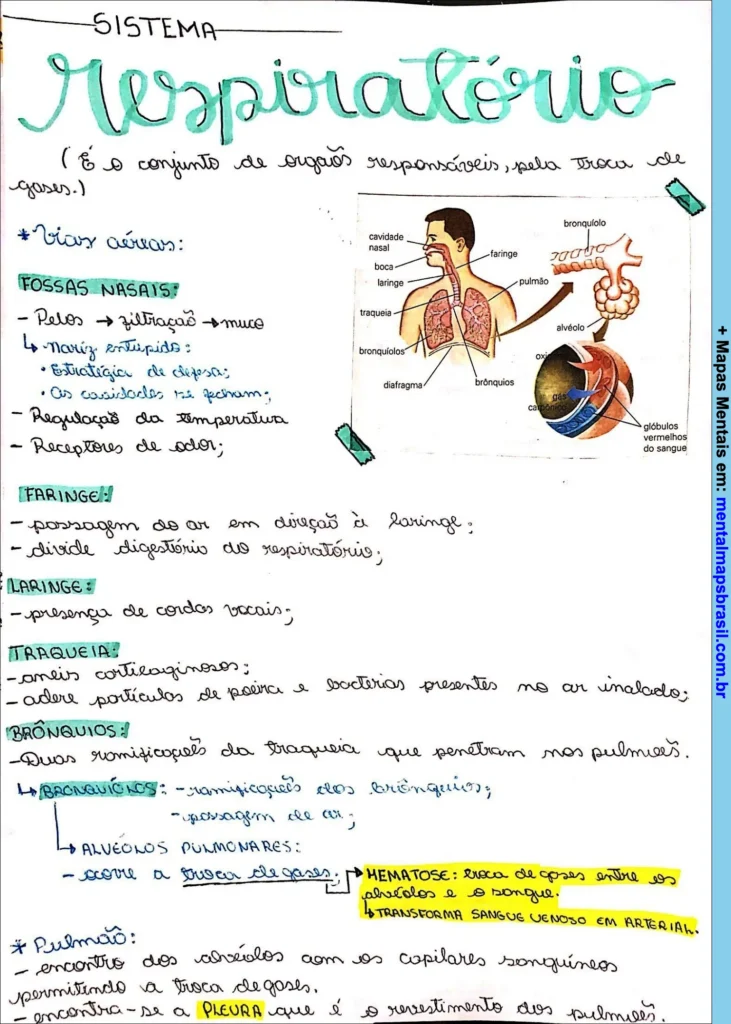 SISTEMA
respiratório
(É o conjunto de orgaõs responsáveis, pela troca de
gases.)
* Vias aéreas:
FOSSAS NASAIS:
- Pelos → filtração → muco
↳ Nariz entupido:
• Estratégia de defesa;
• As cavidades se fecham;
- Regulação da temperatura
- Receptores de odor;
cavidade
nasal
boca
laringe
traqueia
bronquíolos
diafragma
faringe
pulmão
brônquios
bronquíolo
alvéolo
oxi
gás
carbônico
glóbulos
vermelhos
do sangue
FARINGE:
- passagem do ar em direção à laringe;
- divide digestório do respiratório;
LARINGE:
- presença de cordas vocais;
TRAQUEIA:
- aneis cartilaginosos;
- adere partículas de poeira e bactérias presentes no ar inalado;
BRÔNQUIOS:
- Duas ramificações da traqueia que penetram nos pulmões.
↳ BRONQUÍOLOS: - ramificações dos brônquios;
- passagem de ar;
↳ ALVÉOLOS PULMONARES:
- ocorre a troca de gases;
→ HEMATOSE: troca de gases entre os
alvéolos e o sangue.
↳ TRANSFORMA SANGUE VENOSO EM ARTERIAL.
* Pulmão:
- encontro dos alvéolos com os capilares sanguíneos
permitindo a troca de gases.
- encontra-se a PLEURA que é o revestimento dos pulmões.
+ Mapas Mentais em: mentalmapsbrasil.com.br